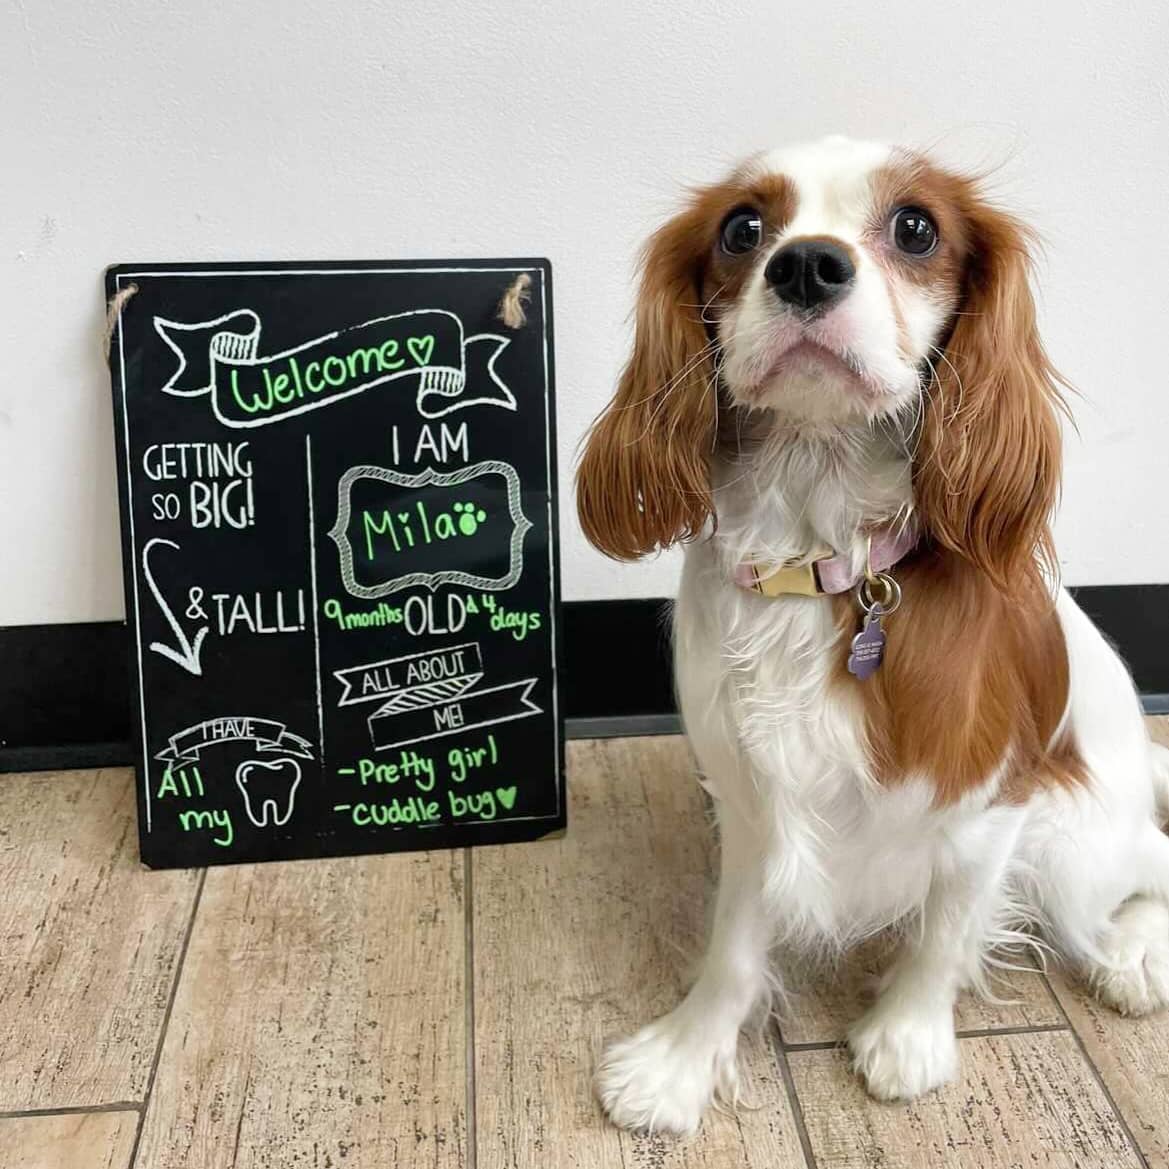 Welcome♡
GETTING
SO BIG!
& TALL!
I HAVE
All
my
I AM
Mila
9months OLD & 4 days
ALL ABOUT
ME!
-Pretty girl
-cuddle bug♥